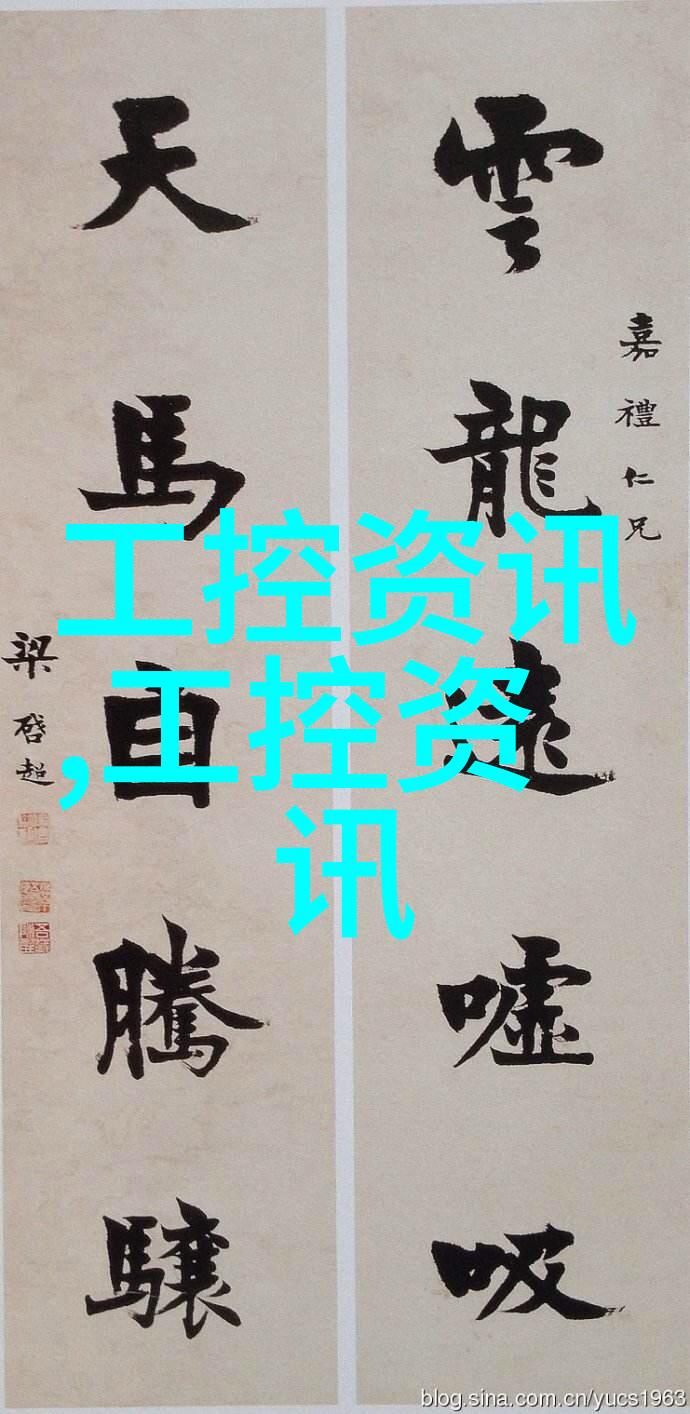 嘉禮仁兄
雲龍遠噓吸
天馬自騰驤
梁啓超
工控资讯
,工控资
讯
blog.sina.com.cn/yucs1963